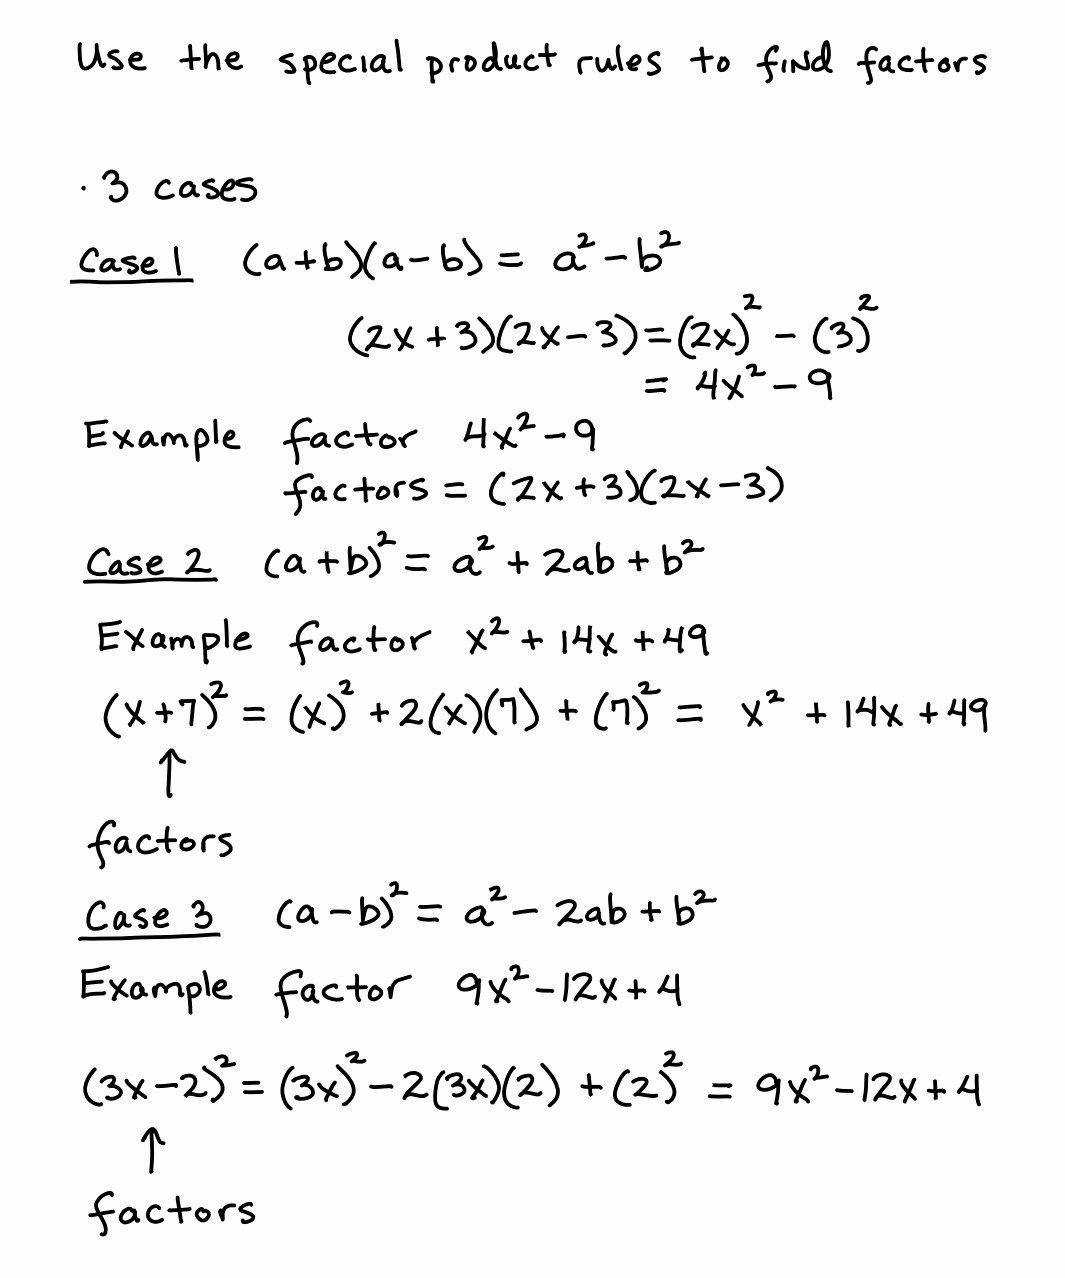 Use the special product rules to find factors
· 3 cases
Case 1 (a+b)(a-b) = a² - b²
(2x+3)(2x-3) = (2x)² - (3)²
= 4x² - 9
Example factor 4x² - 9
factors = (2x+3)(2x-3)
Case 2 (a+b)² = a² + 2ab + b²
Example factor x² + 14x + 49
(x+7)² = (x)² + 2(x)(7) + (7)² = x² + 14x + 49
↑
factors
Case 3 (a-b)² = a² - 2ab + b²
Example factor 9x² - 12x + 4
(3x-2)² = (3x)² - 2(3x)(2) + (2)² = 9x² - 12x + 4
↑
factors